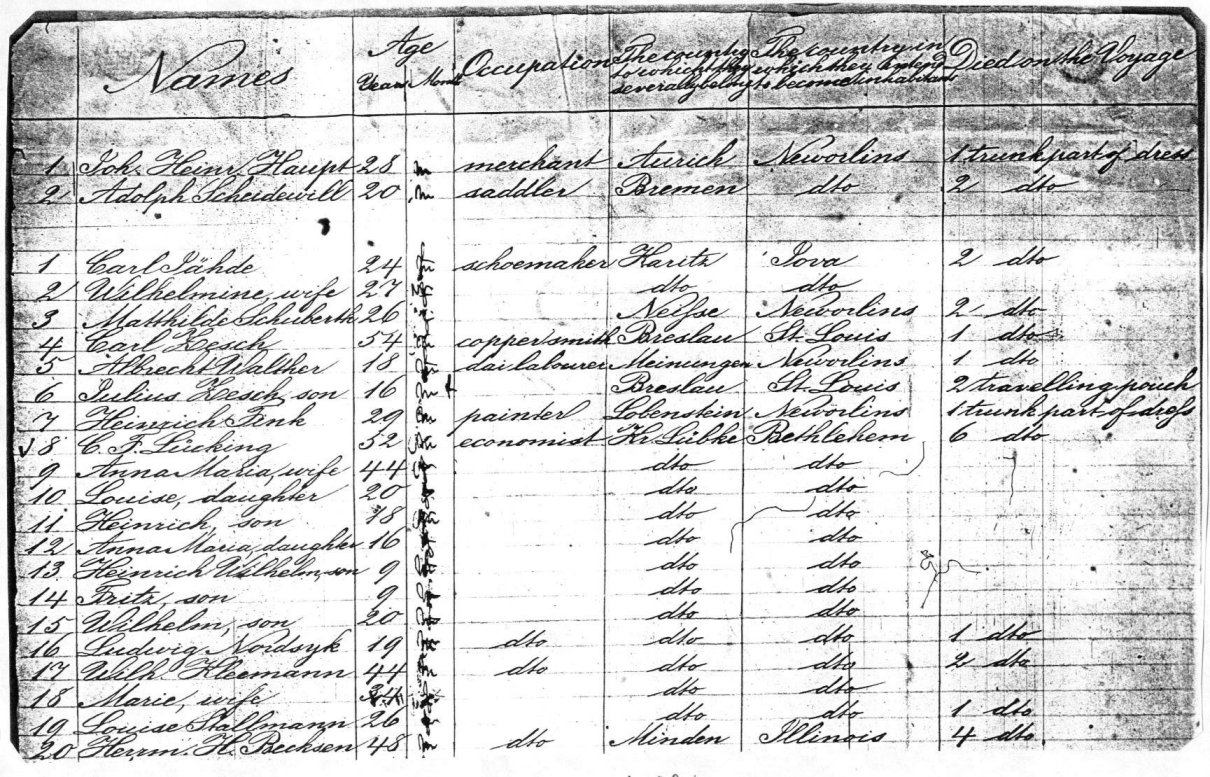 Names Age Occupation The country to which they severally belong The country in which they intend to become inhabitant Died on the Voyage
Years Month
1 Joh. Heinr. Haupt 28 m merchant Aurich Neworlins 1 trunk part of dress
2 Adolph Scheidewill 20 m saddler Bremen dto 2 dto
1 Carl Jähde 24 schoemaker Haritz Iova 2 dto
2 Wilhelmine, wife 27 dto dto
3 Matthilde Schuberth 26 Neisse Neworlins 2 dto
4 Carl Zesch 54 coppersmith Breslau St. Louis 1 dto
5 Albrecht Walther 18 dailabourer Meinungen Neworlins 1 dto
6 Julius Zesch, son 16 Breslau St. Louis 2 travelling pouch
7 Heinrich Fink 29 painder Lobenstein Neworlins 1 trunk part of dress
8 C. F. Lücking 52 economist Kr. Lübke Bethlehem 6 dto
9 Anna Maria, wife 44 dto dto
10 Louise, daughter 20 dto dto
11 Heinrich, son 18 dto dto
12 Anna Maria, daughter 16 dto dto
13 Heinrich Wilhelm, son 9 dto dto
14 Fritz, son 9 dto dto
15 Wilhelm, son 20 dto dto
16 Ludwig Nordsyk 19 dto dto dto 1 dto
17 Wilh. Kleemann 44 dto dto dto 2 dto
18 Marie, wife dto dto
19 Louise Stallmann 26 dto dto 1 dto
20 Herrm. H. Becksen 48 dto Minden Illinois 4 dto